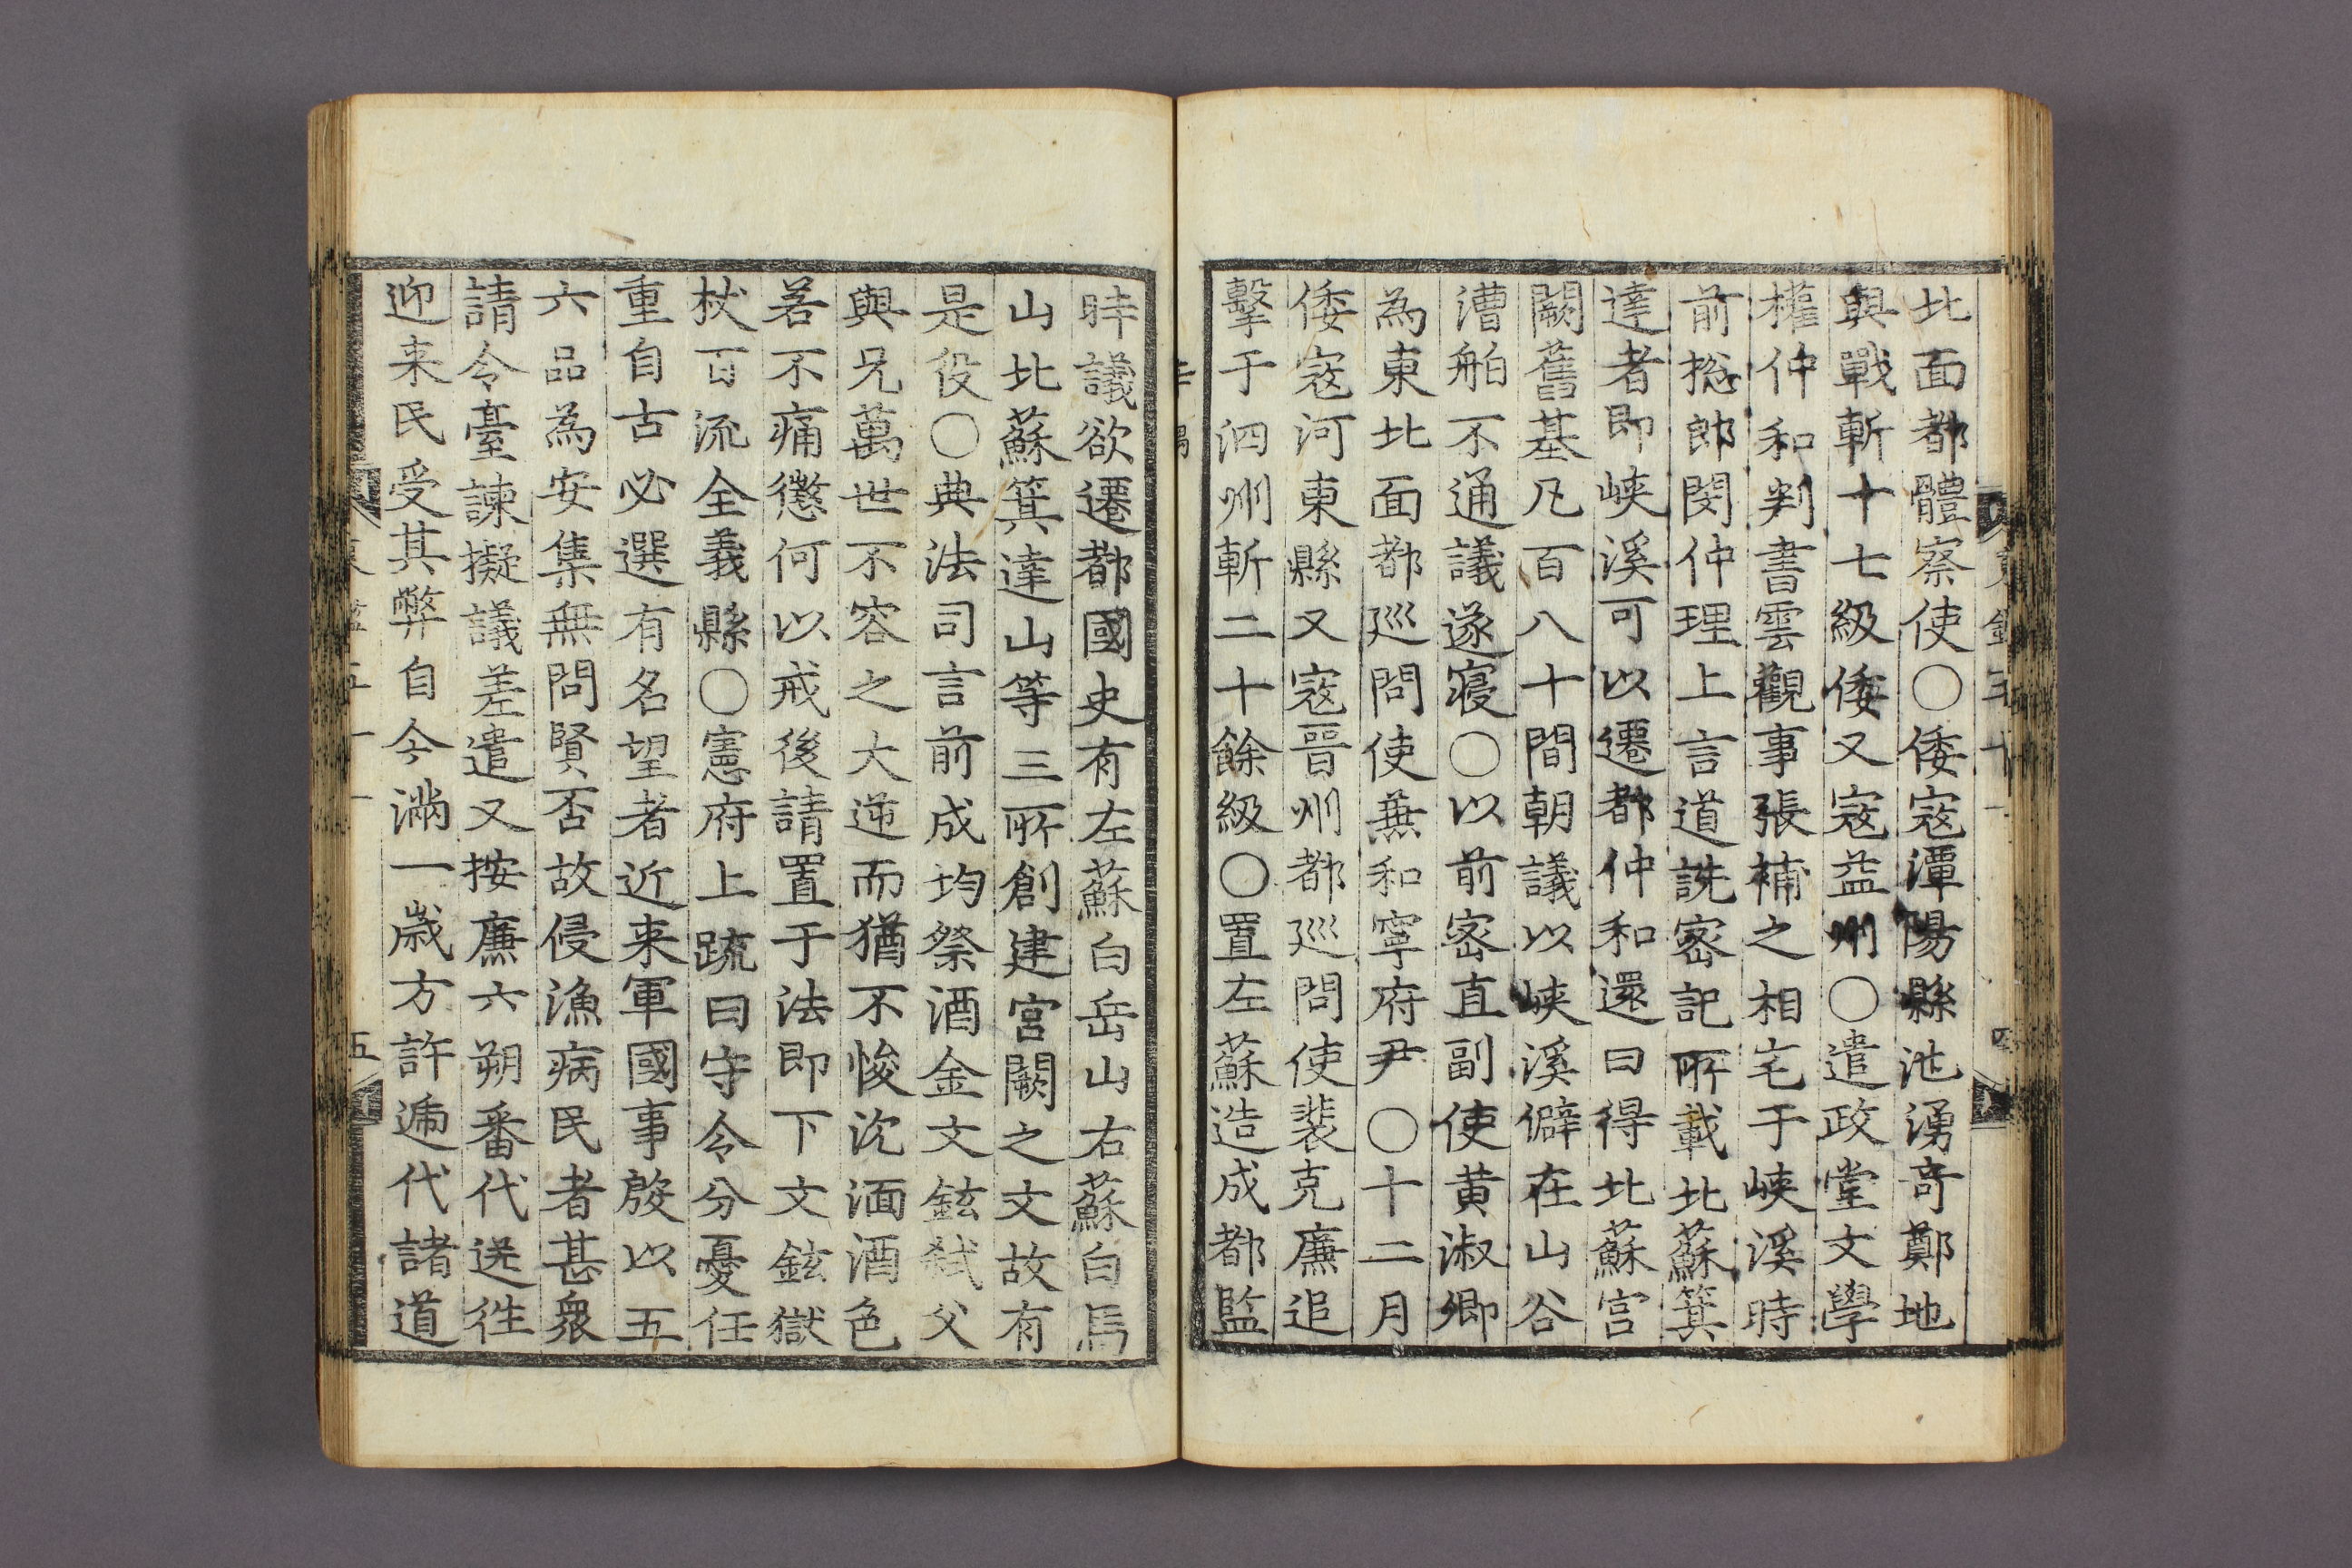 北面都體察使○倭寇潭陽縣池湧奇鄭地
與戰斬十七級倭又寇益州○遣政堂文學
權仲和判書雲觀事張補之相宅于峽溪時
前捴郎閔仲理上言道詵密記所載北蘇箕
達者即峽溪可以遷都仲和還曰得北蘇宮
闕舊基凡百八十間朝議以峽溪僻在山谷
漕舶不通議遂寢○以前密直副使黄淑卿
為東北面都巡問使兼和寧府尹○十二月
倭寇河東縣又寇晉州都巡問使裴克廉追
擊于泗州斬二十餘級○置左蘇造成都監
時議欲遷都國史有左蘇白岳山右蘇白馬
山北蘇箕達山等三所創建宮闕之文故有
是役○典法司言前成均祭酒金文鉉弑父
與兄萬世不容之大逆而猶不悛沈湎酒色
若不痛懲何以戒後請置于法即下文鉉獄
杖百流全義縣○憲府上疏曰守令分憂任
重自古必選有名望者近来軍國事殷以五
六品為安集無問賢否故侵漁病民者甚衆
請令臺諫擬議差遣又按廉六朔番代送往
迎来民受其弊自今滿一歲方許遞代諸道
五